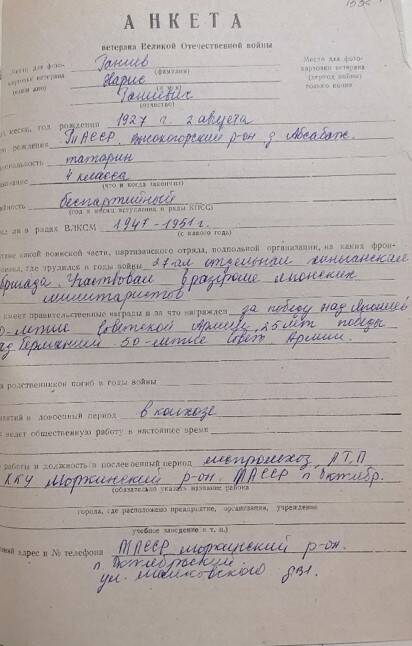 АНКЕТА
ветерана Великой Отечественной войны
Место для фото- Ганиев Место для фото-
карточки ветерана (фамилия) карточки ветерана
(наши дни) Нарис (период войны)
(имя) только копия
Ганиевич
(отчество)
месяц, год рождения 1927 г. 2 августа
рождения ТАССР, Высокогорский р-он д
нальность татарин
зование 4 класса
(что и когда закончил)
йность беспартийный
(год и месяц вступления в ряды КПСС)
ли в рядах ВЛКСМ 1947-1951 г.
(с какого года)
ставе какой воинской части, партизанского отряда, подпольной организации, на каких фрон-
где трудился в годы войны 27-ая отдельная хинганская
бригада. Участвовал в разгроме японских
милитаристов
имеет правительственные награды и за что награжден за победу над Японией
0-летие Советской Армии, 25 лет победы
ад Германией 50-летие Совет. Армии.
родственников погиб в годы войны
занятий в довоенный период в колхозе
ведет общественную работу в настоящее время
работы и должность в послевоенный период леспромхоз, АТП
ККУ р-он. МАССР п Октябр.
(обязательно указать название района
города, где расположено предприятие, организация, учреждение
учебное заведение и т. п.)
ний адрес и № телефона МАССР р-он.
п Октябрьский
ул. Маяковского